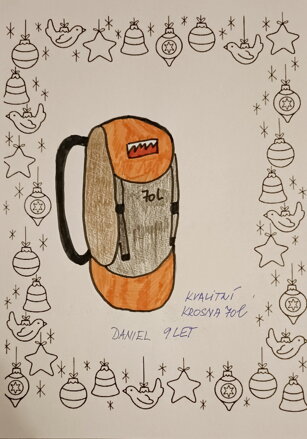 70L
KVALITNÍ
KROSNA 70l
DANIEL 9 LET